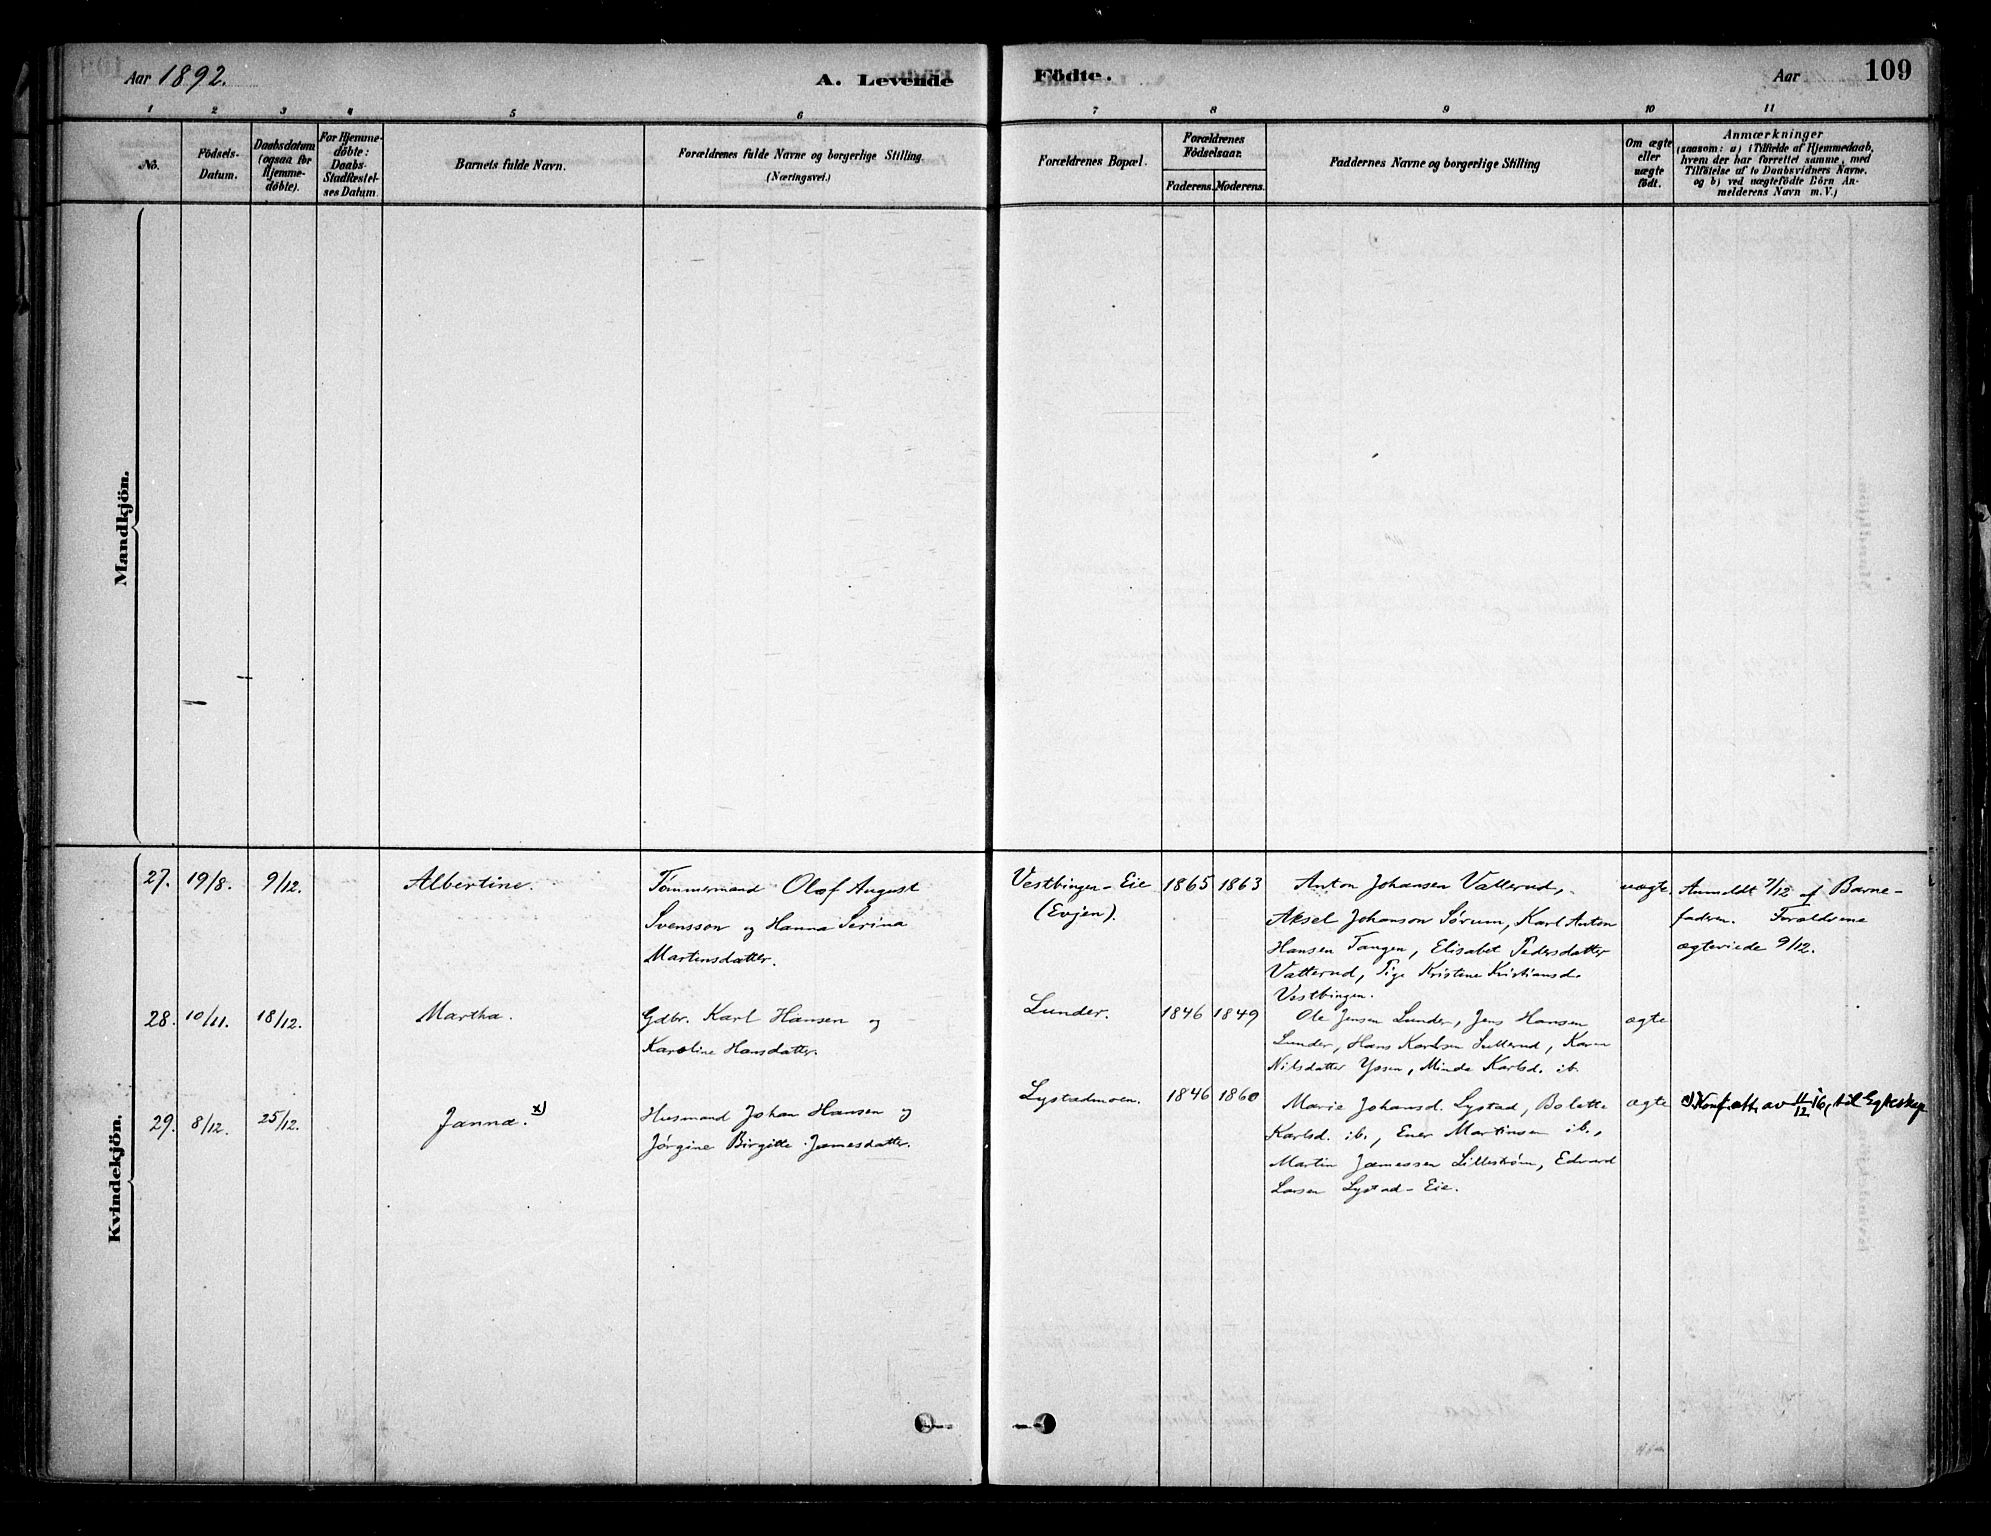 Aar 1892.
A. Levende
Födte.
Aar
109
1
2
3
4
5
6
7
8
9
10
11
No.
Födsels-
Datum.
Daabsdatum
(ogsaa for
Hjemme-
döbte).
For Hjemme-
döbte:
Daabs-
Stadfæstel-
ses Datum.
Barnets fulde Navn.
Forældrenes fulde Navne og borgerlige Stilling.
(Næringsvei.)
Forældrenes Bopæl.
Forældrenes
Födselsaar.
Faderens.
Moderens.
Faddernes Navne og borgerlige Stilling
Om ægte
eller
uægte
födt.
Anmærkninger
(saasom: a) i Tilfælde af Hjemmedaab,
hvem der har forrettet samme, med
Tilföielse af to Daabsvidners Navne.
og b) ved uægtefödte Börn An-
melderens Navn m. V.)
Mandkjön.
Kvindekjön.
27.
19/8.
9/12.
Albertine.
Tømmermand Olaf August
Svensson og Hanna Serina
Martinsdatter.
Vestbingen-Eie
(Evjen).
1865
1863
Anton Johansen Vatterud,
Aksel Johanson Sørum, Karl Anton
Hansen Tangen, Elisabet Pedersdatter
Vatterud, Pige Kristine Kristiansd.
Vestbingen.
uægte.
Anmeldt 7/12 af Barne-
faderen. Forældrene
ægteviede 9/12.
28.
10/11.
18/12.
Martha.
Gdbr. Karl Hansen og
Karoline Hansdatter.
Lunder.
1846
1849
Ole Jensen Lunder, Jens Hansen
Lunder, Hans Karlsen Sutterud, Karen
Nilsdatter Yssen, Minda Karlsd. ib.
ægte
29.
8/12.
25/12.
Janna. x)
Husmand Johan Hansen og
Jørgine Birgitte Jamesdatter.
Lystadmoen.
1846
1860
Marie Johansd. Lystad, Bolette
Karlsd. ib., Ener Martinsen ib.,
Martin Jamessen Lillestrøm, Edvard
Larsen Lystad-Eie.
ægte
x) Konf. att. av 11/12 16, til Egteskap